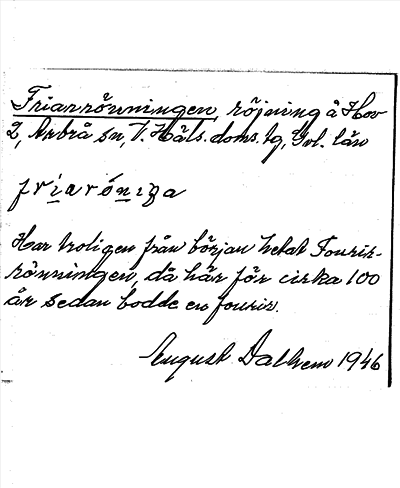 Friarrönningen, röjning å Hov
2, Arbrå sn, V. Häls. doms. tg, Gvl. län
friaróniza
Har troligen från början hetat Fourir-
rönningen, då här för cirka 100
år sedan bodde en fourir.
August Dalhem 1946